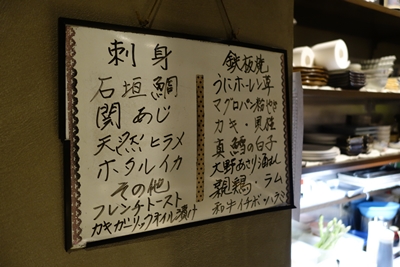 刺身
石垣鯛
関あじ
天然ヒラメ
ホタルイカ
その他
フレンチトースト
カキガーリックオイル漬け
鉄板焼
うにホーレン草
マグロパン粉やき
カキ・異陸
真鱈の白子
大野あさり酒むし
親鶏・ラム
和牛イチボ